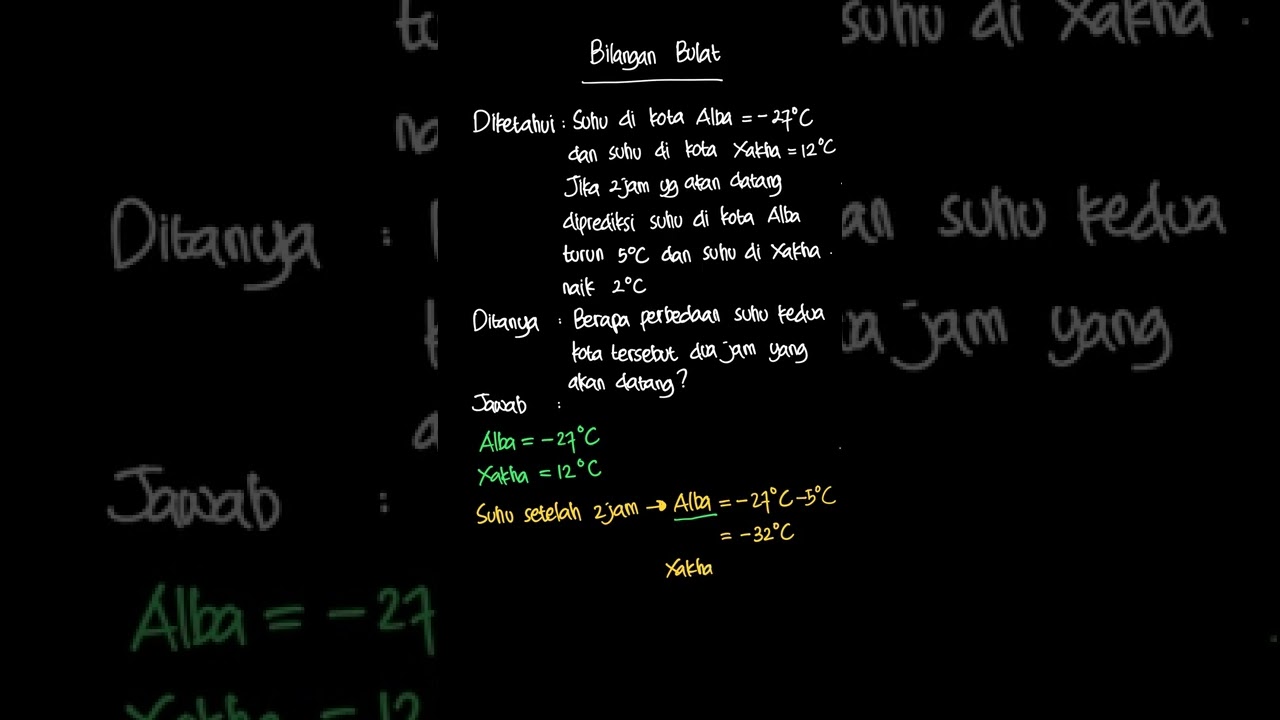 Bilangan Bulat
Diketahui : Suhu di kota Alba = -27°C
dan suhu di kota Xakha = 12°C
Jika 2 jam yg akan datang
diprediksi suhu di kota Alba
turun 5°C dan suhu di Xakha
naik 2°C
Ditanya : Berapa perbedaan suhu kedua
kota tersebut dua jam yang
akan datang?
Jawab :
Alba = -27°C
Xakha = 12°C
Suhu setelah 2 jam → Alba = -27°C -5°C
= -32°C
Xakha